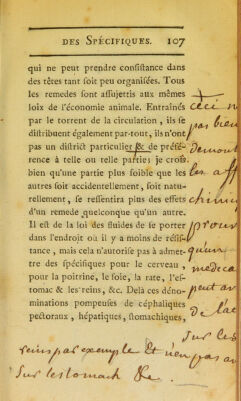 DES SPÉCIFIQUES. 107
qui ne peut prendre consistance dans
des têtes tant soit peu organisées. Tous
les remedes sont assujettis aux mêmes
loix de l'économie animale. Entraînés
par le torrent de la circulation, ils se
distribuent également par-tout, ils n'ont
pas un district particulier & de préfé-
rence à telle ou telle partie; je crois
bien qu'une partie plus foible que les
autres soit accidentellement, soit natu-
rellement, se ressentira plus des effets
d'un remede quelconque qu'un autre.
Il est de la loi des fluides de se porter
dans l'endroit où il y a moins de résis-
tance, mais cela n'autorise pas à admet-
tre des spécifiques pour le cerveau,
pour la poitrine, le foie, la rate, l'es-
tomac & les reins, &c. Delà ces déno-
minations pompeuses de céphaliques
pectoraux, hépatiques, stomachiques,
ceci n
pas bien
demont
les aff
chimi
prouv
qu'un
medica
peut av
de l'ac
sur les
reins par exemple Et n'en pas av
sur lestomach &c.